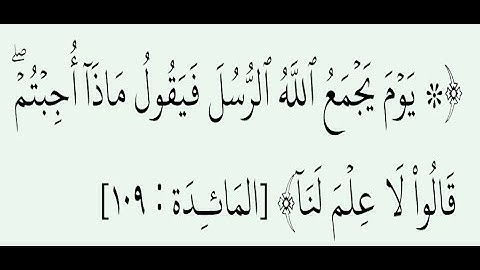 ﴿۞ يَوْمَ يَجْمَعُ ٱللَّهُ ٱلرُّسُلَ فَيَقُولُ مَاذَآ أُجِبْتُمْۖ
قَالُوا۟ لَا عِلْمَ لَنَآ﴾ [المَائِدَة : ١٠٩]